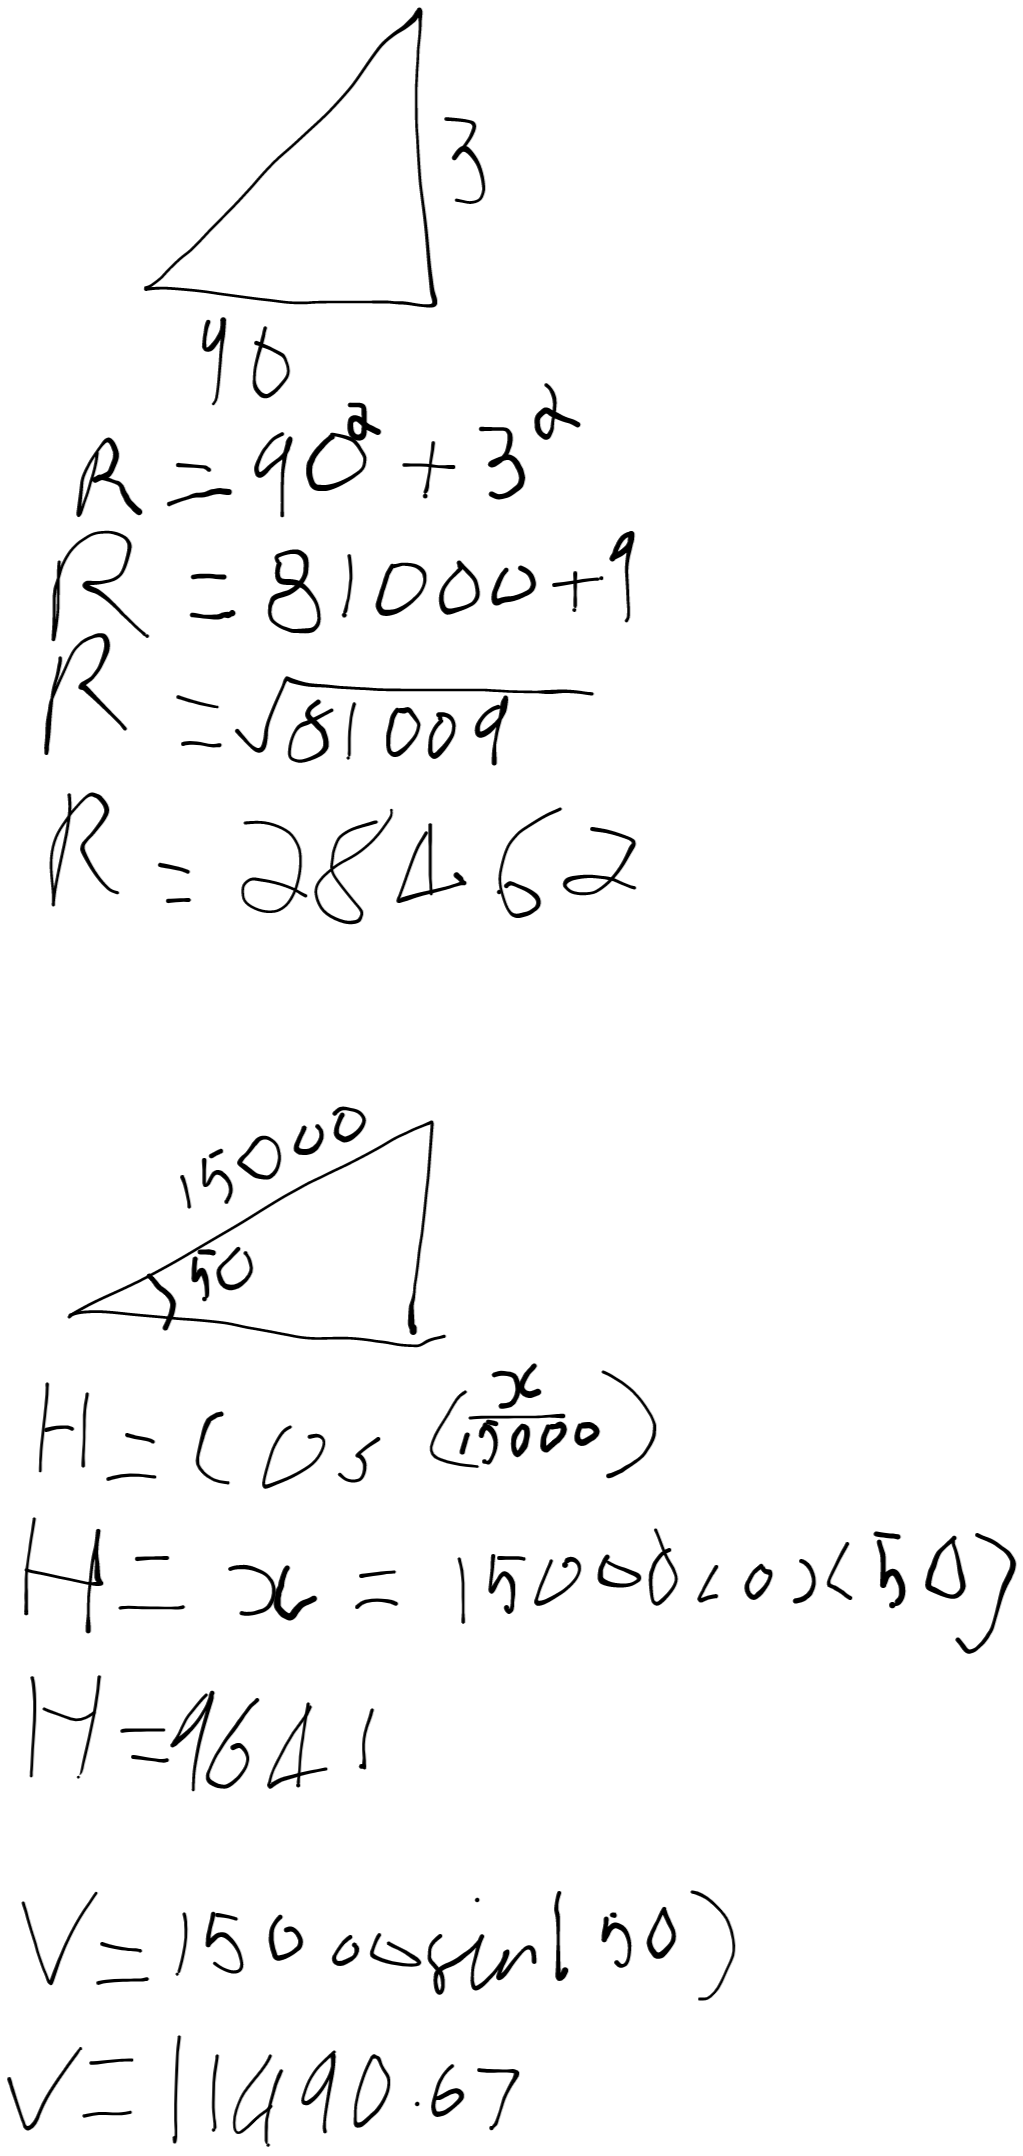 3
90
R = 90² + 3²
R = 81000+9
R = √81009
R = 284.62
15000
50
H = Cos (x/15000)
H = x = 15000cos(50)
H = 9641
V = 15000sin(50)
V = 11490.67